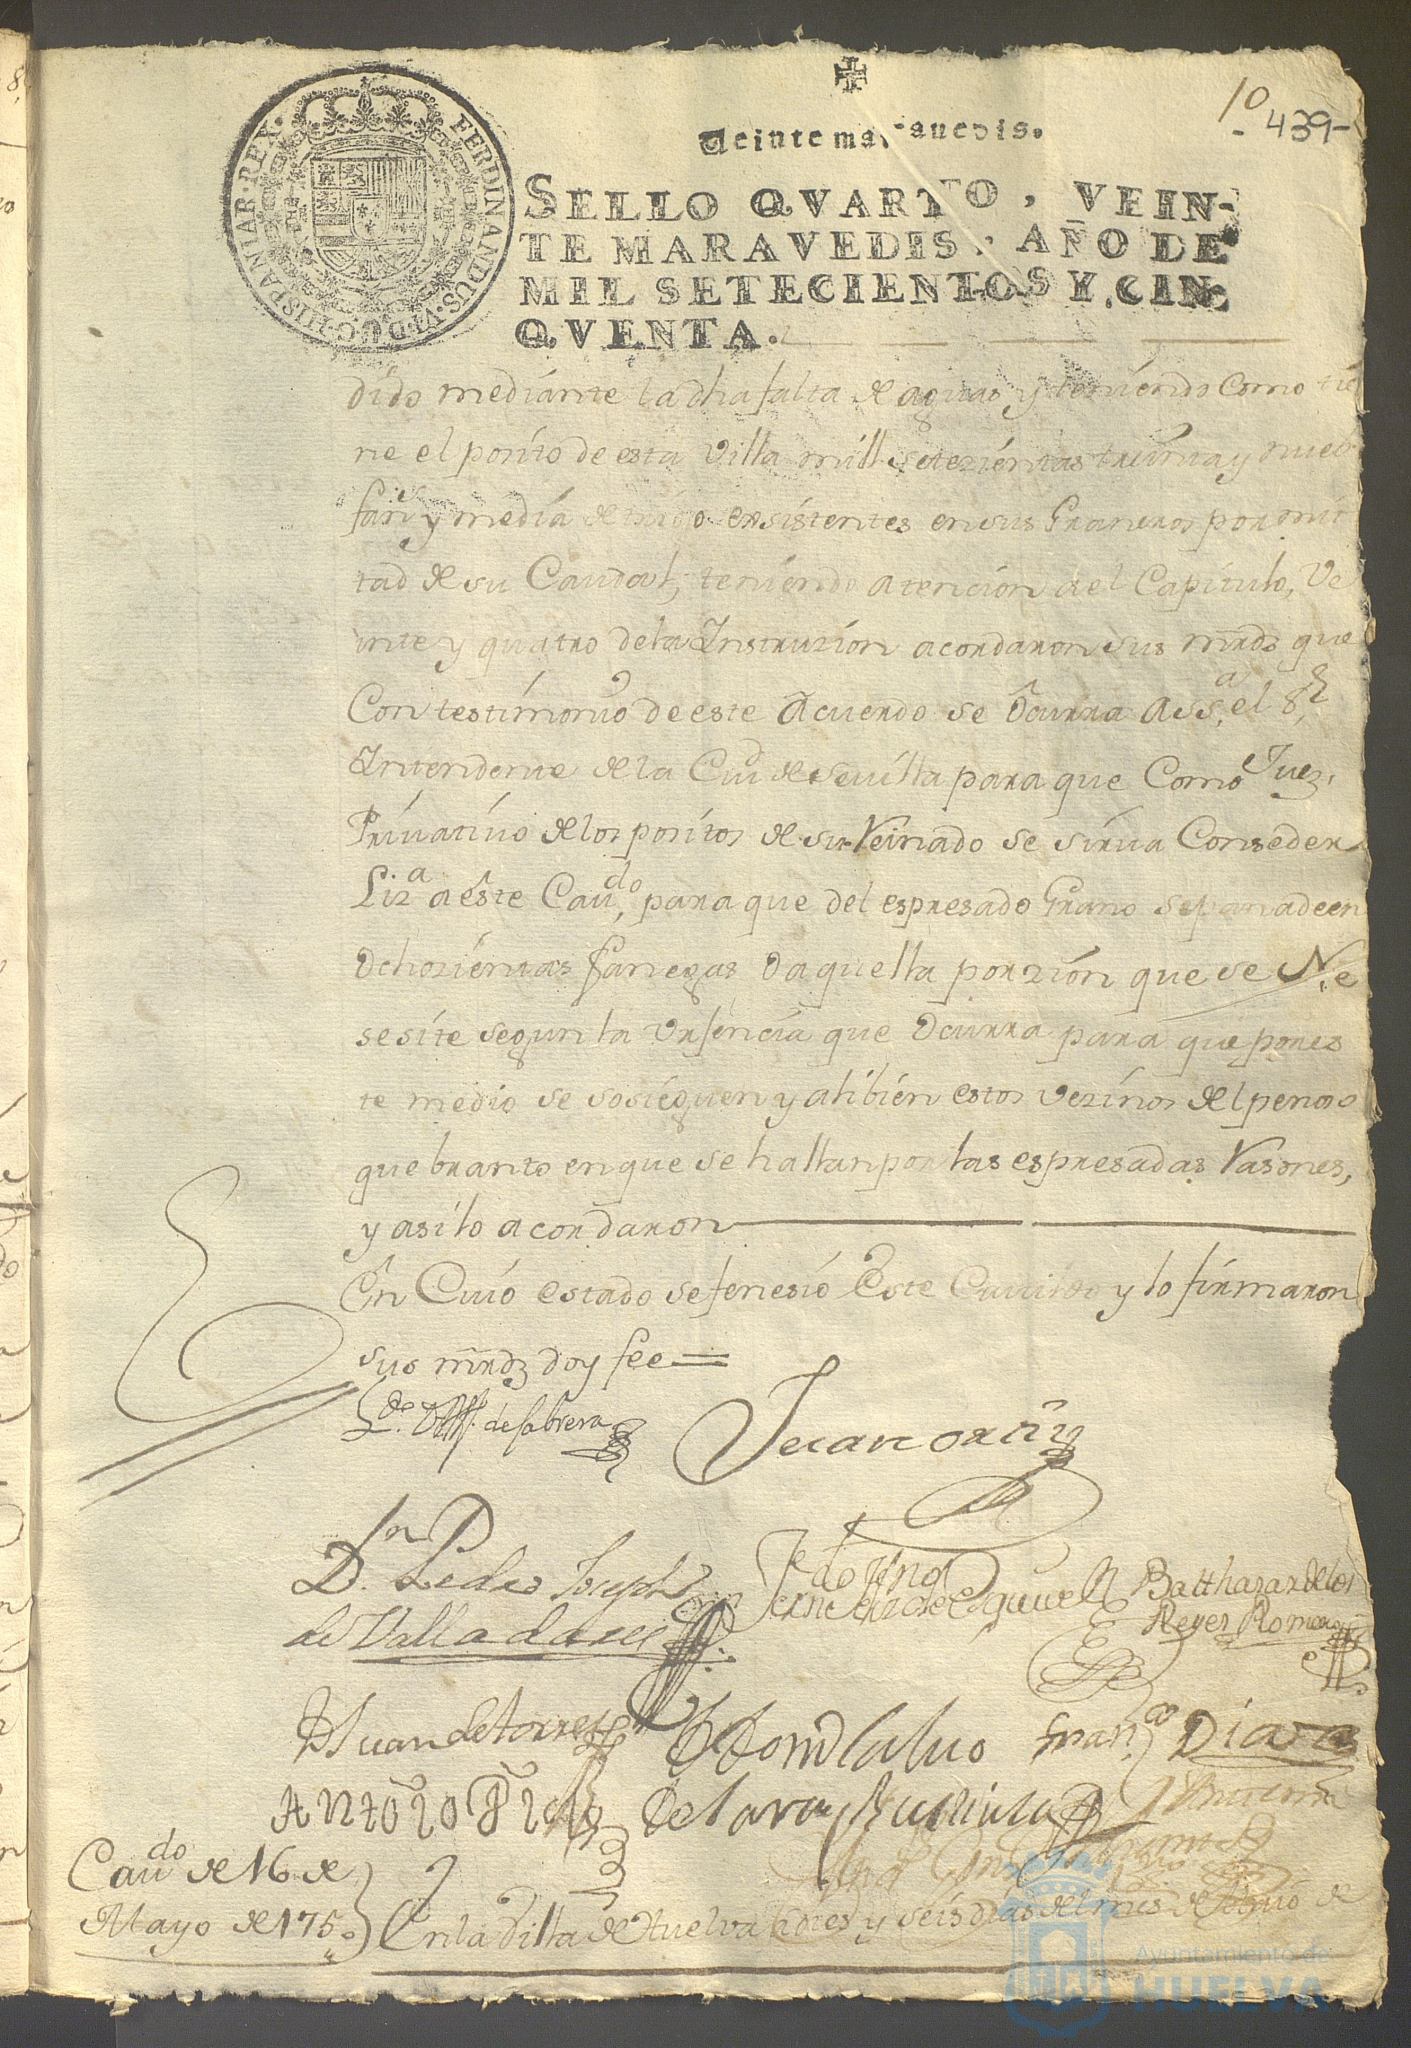 10
- 439-
Veinte maravedis.
SELLO QVARTO, VEIN-
TE MARAVEDIS, AÑO DE
MIL SETECIENTOS Y CIN-
QVENTA.
FERDINANDUS·VI·D·G·HISPANIAR·REX·
dido mediante la dha falta de aguas y teniendo como tie
ne el posito de esta Villa mill setezientas treinta y nueve
fans y media de trigo existentes en sus Graneros por mi
tad de su Caudal, teniendo atencion a el Capitulo, Ve
inte y quatro de la Instruzion acordaron sus mrds que
Con testimonio de este Acuerdo se Ocurra a Ssa, el Sr
Intendente de la Ciud de Sevilla para que como Juez,
Privativo de los positos de su Reinado se sirva Conseder
Liza a este Cavdo, para que del espresado Grano se panadeen
Ochozientas fanegas o aquella porzion que se Ne
sesite segun la Urjencia que Ocurra para que por es
te medio se sosieguen y alibien estos Vezinos del penoso
quebranto en que se hallan por las espresadas Rasones,
y asi lo acordaron
En Cuio estado se fenesio Este Cavildo y lo firmaron
sus mrds doy fee=
Ldo. de Cabrera
Juan ortiz
Dn. Pedro Joseph
de Valladares
de Esquivel
Balthazar de los
Reyes Romero
D Juan de torres
Calvo
Franco Dias
Antonio
de lara
Cavdo de 16 de
Mayo de 1750
En la Villa de Huelva a dies y seis dias del mes de de
Ayuntamiento de
HUELVA